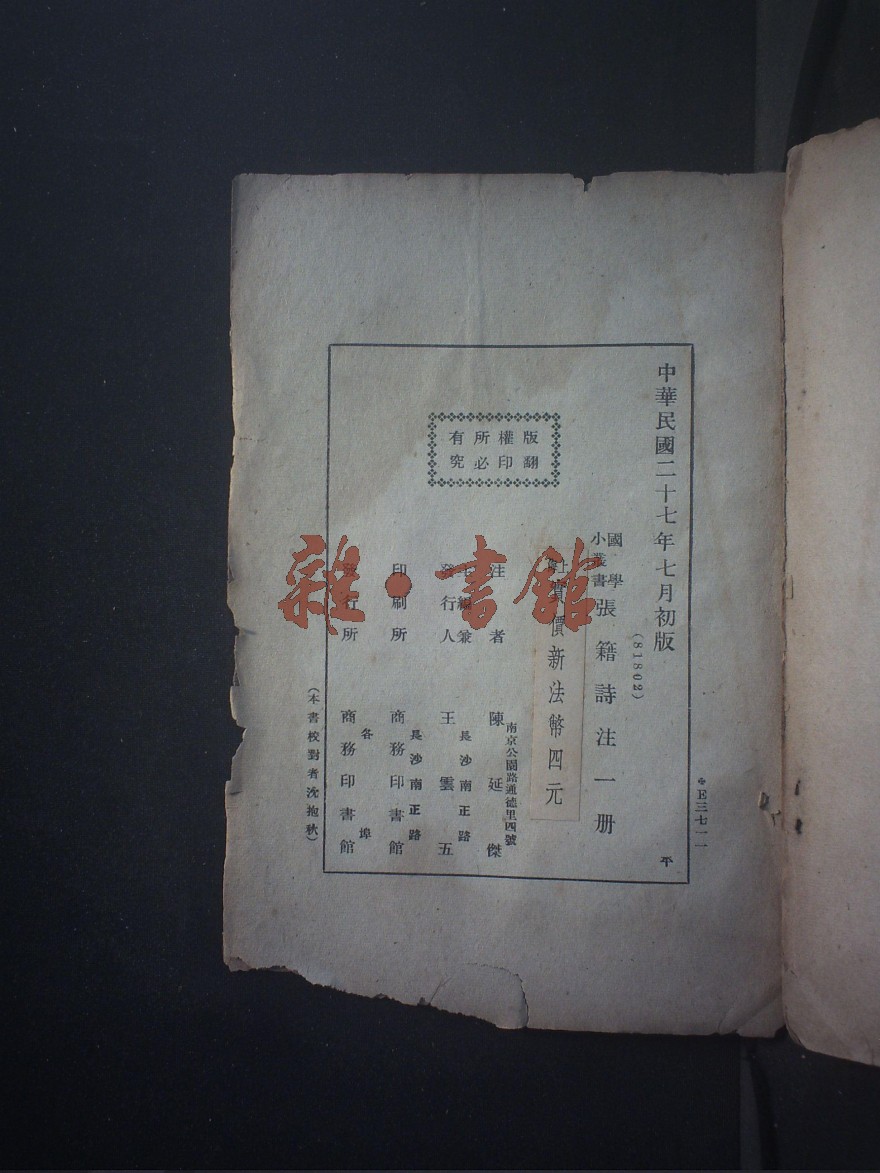 中華民國二十七年七月初版
(81802)
國學
小叢書
張籍詩注一册
價新法幣四元
版權所有
翻印必究
注者
南京公園路通德里四號
陳延傑
發行人
長沙南正路
王雲五
印刷所
長沙南正路
商務印書館
發行所
各埠
商務印書館
(本書校對者沈抱秋)
E三七一一
平
雜·書館